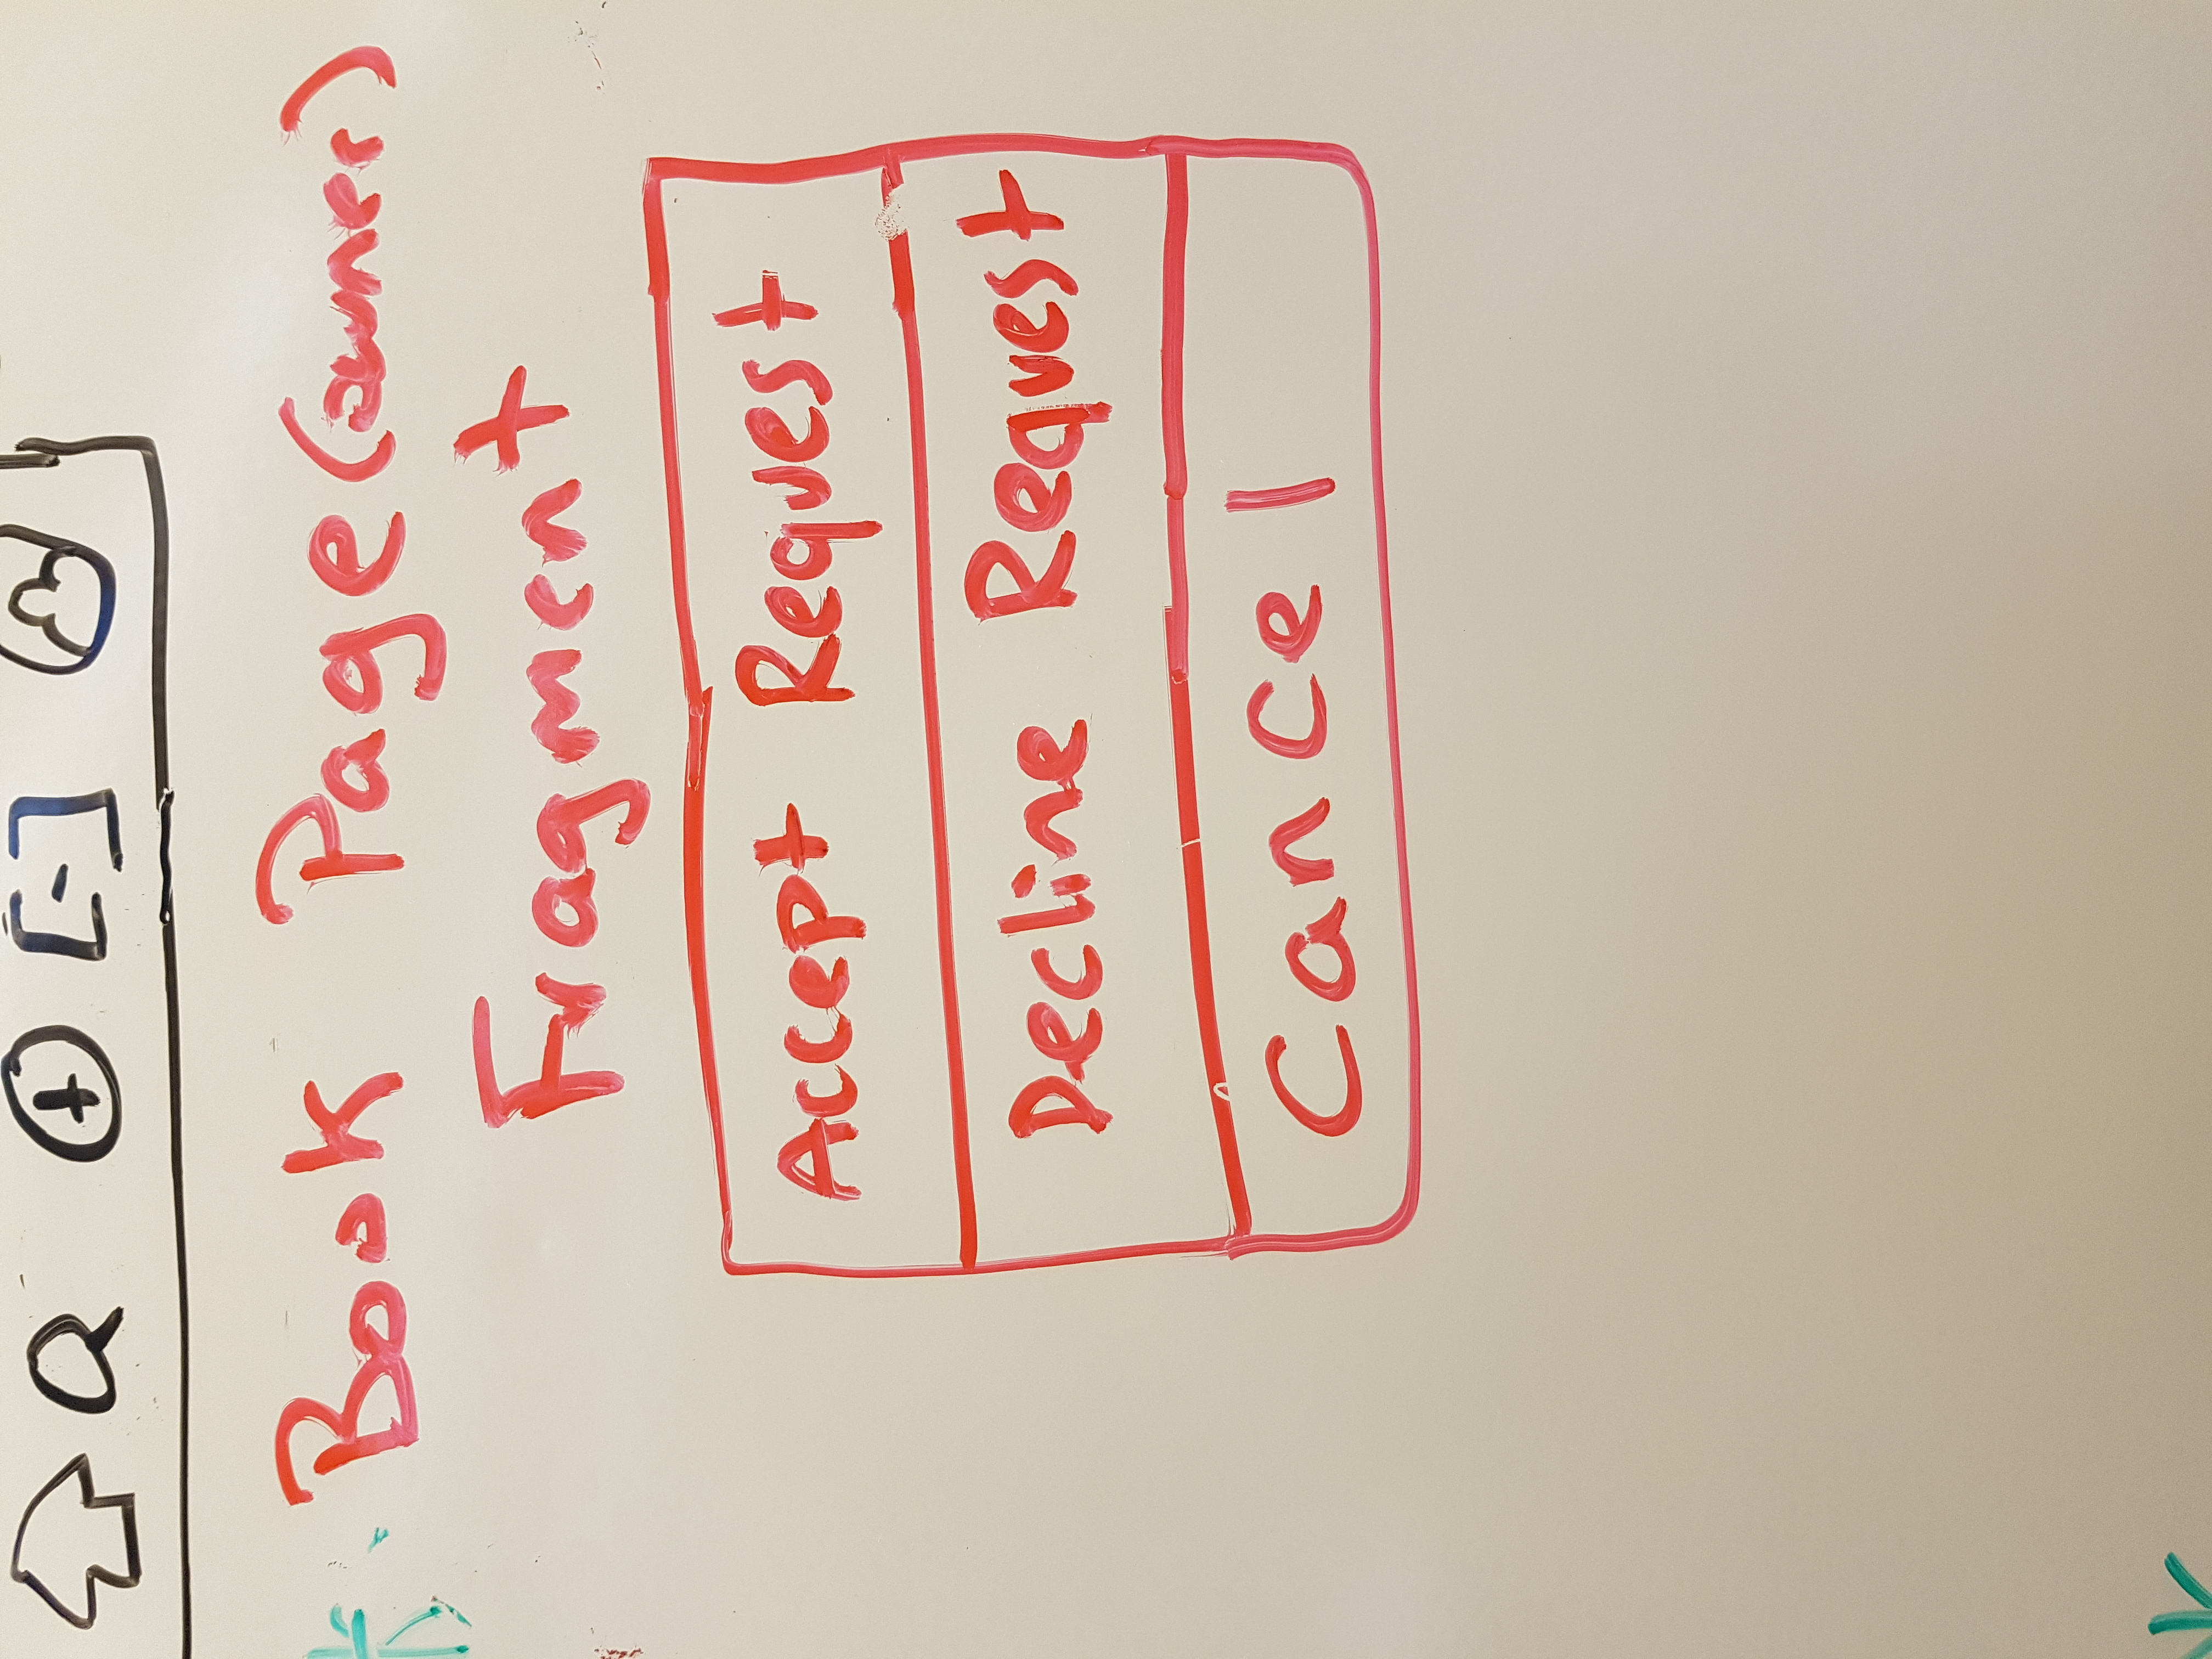 Book Page (owner)
Fragment
Accept Request
Decline Request
Cancel